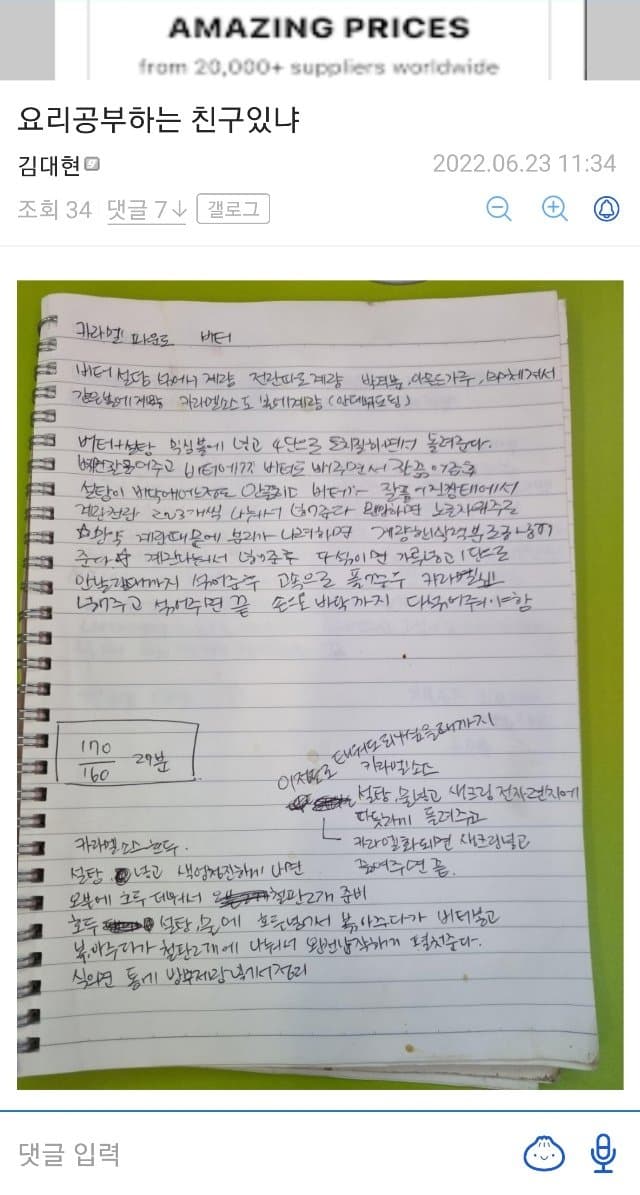 AMAZING PRICES
from 20,000+ suppliers worldwide
요리공부하는 친구있냐
김대현
2022.06.23 11:34
조회 34 댓글 7↓ 갤로그
카라멜 파운드 버터
버터 설탕 넣어서 계량 전란따로계량 박력분, 아몬드가루, BP체쳐서
같은볼에계량 카라멜소스도 볼에계량
버터+설탕 믹싱볼에 넣고 4단으로 돌려준다.
설탕이 상태에서
계란전란 2~3개씩 나눠서 넣어준다
계란때문에 분리가 나려하면
준다 계란나눠서 넣어준후 다 섞이면 가루넣고 1단으로
섞어준후 고속으로 카라멜소스
넣어주고 섞어주면 끝 손으로 바닥까지 다섞어줘야함
170
160 29분
카라멜소스
설탕,물넣고 생크림 전자렌지에
따뜻하게 돌려주고
카라멜화되면 생크림넣고
끝.
카라멜소스호두.
설탕, 넣고
오븐에 호두 데워서 철판2개 준비
호두 설탕,물에 호두넣어서 볶아주다가 버터넣고
볶아주다가 철판2개에 나눠서 펼쳐준다.
식으면 통에 방부제랑 넣어서정리
댓글 입력